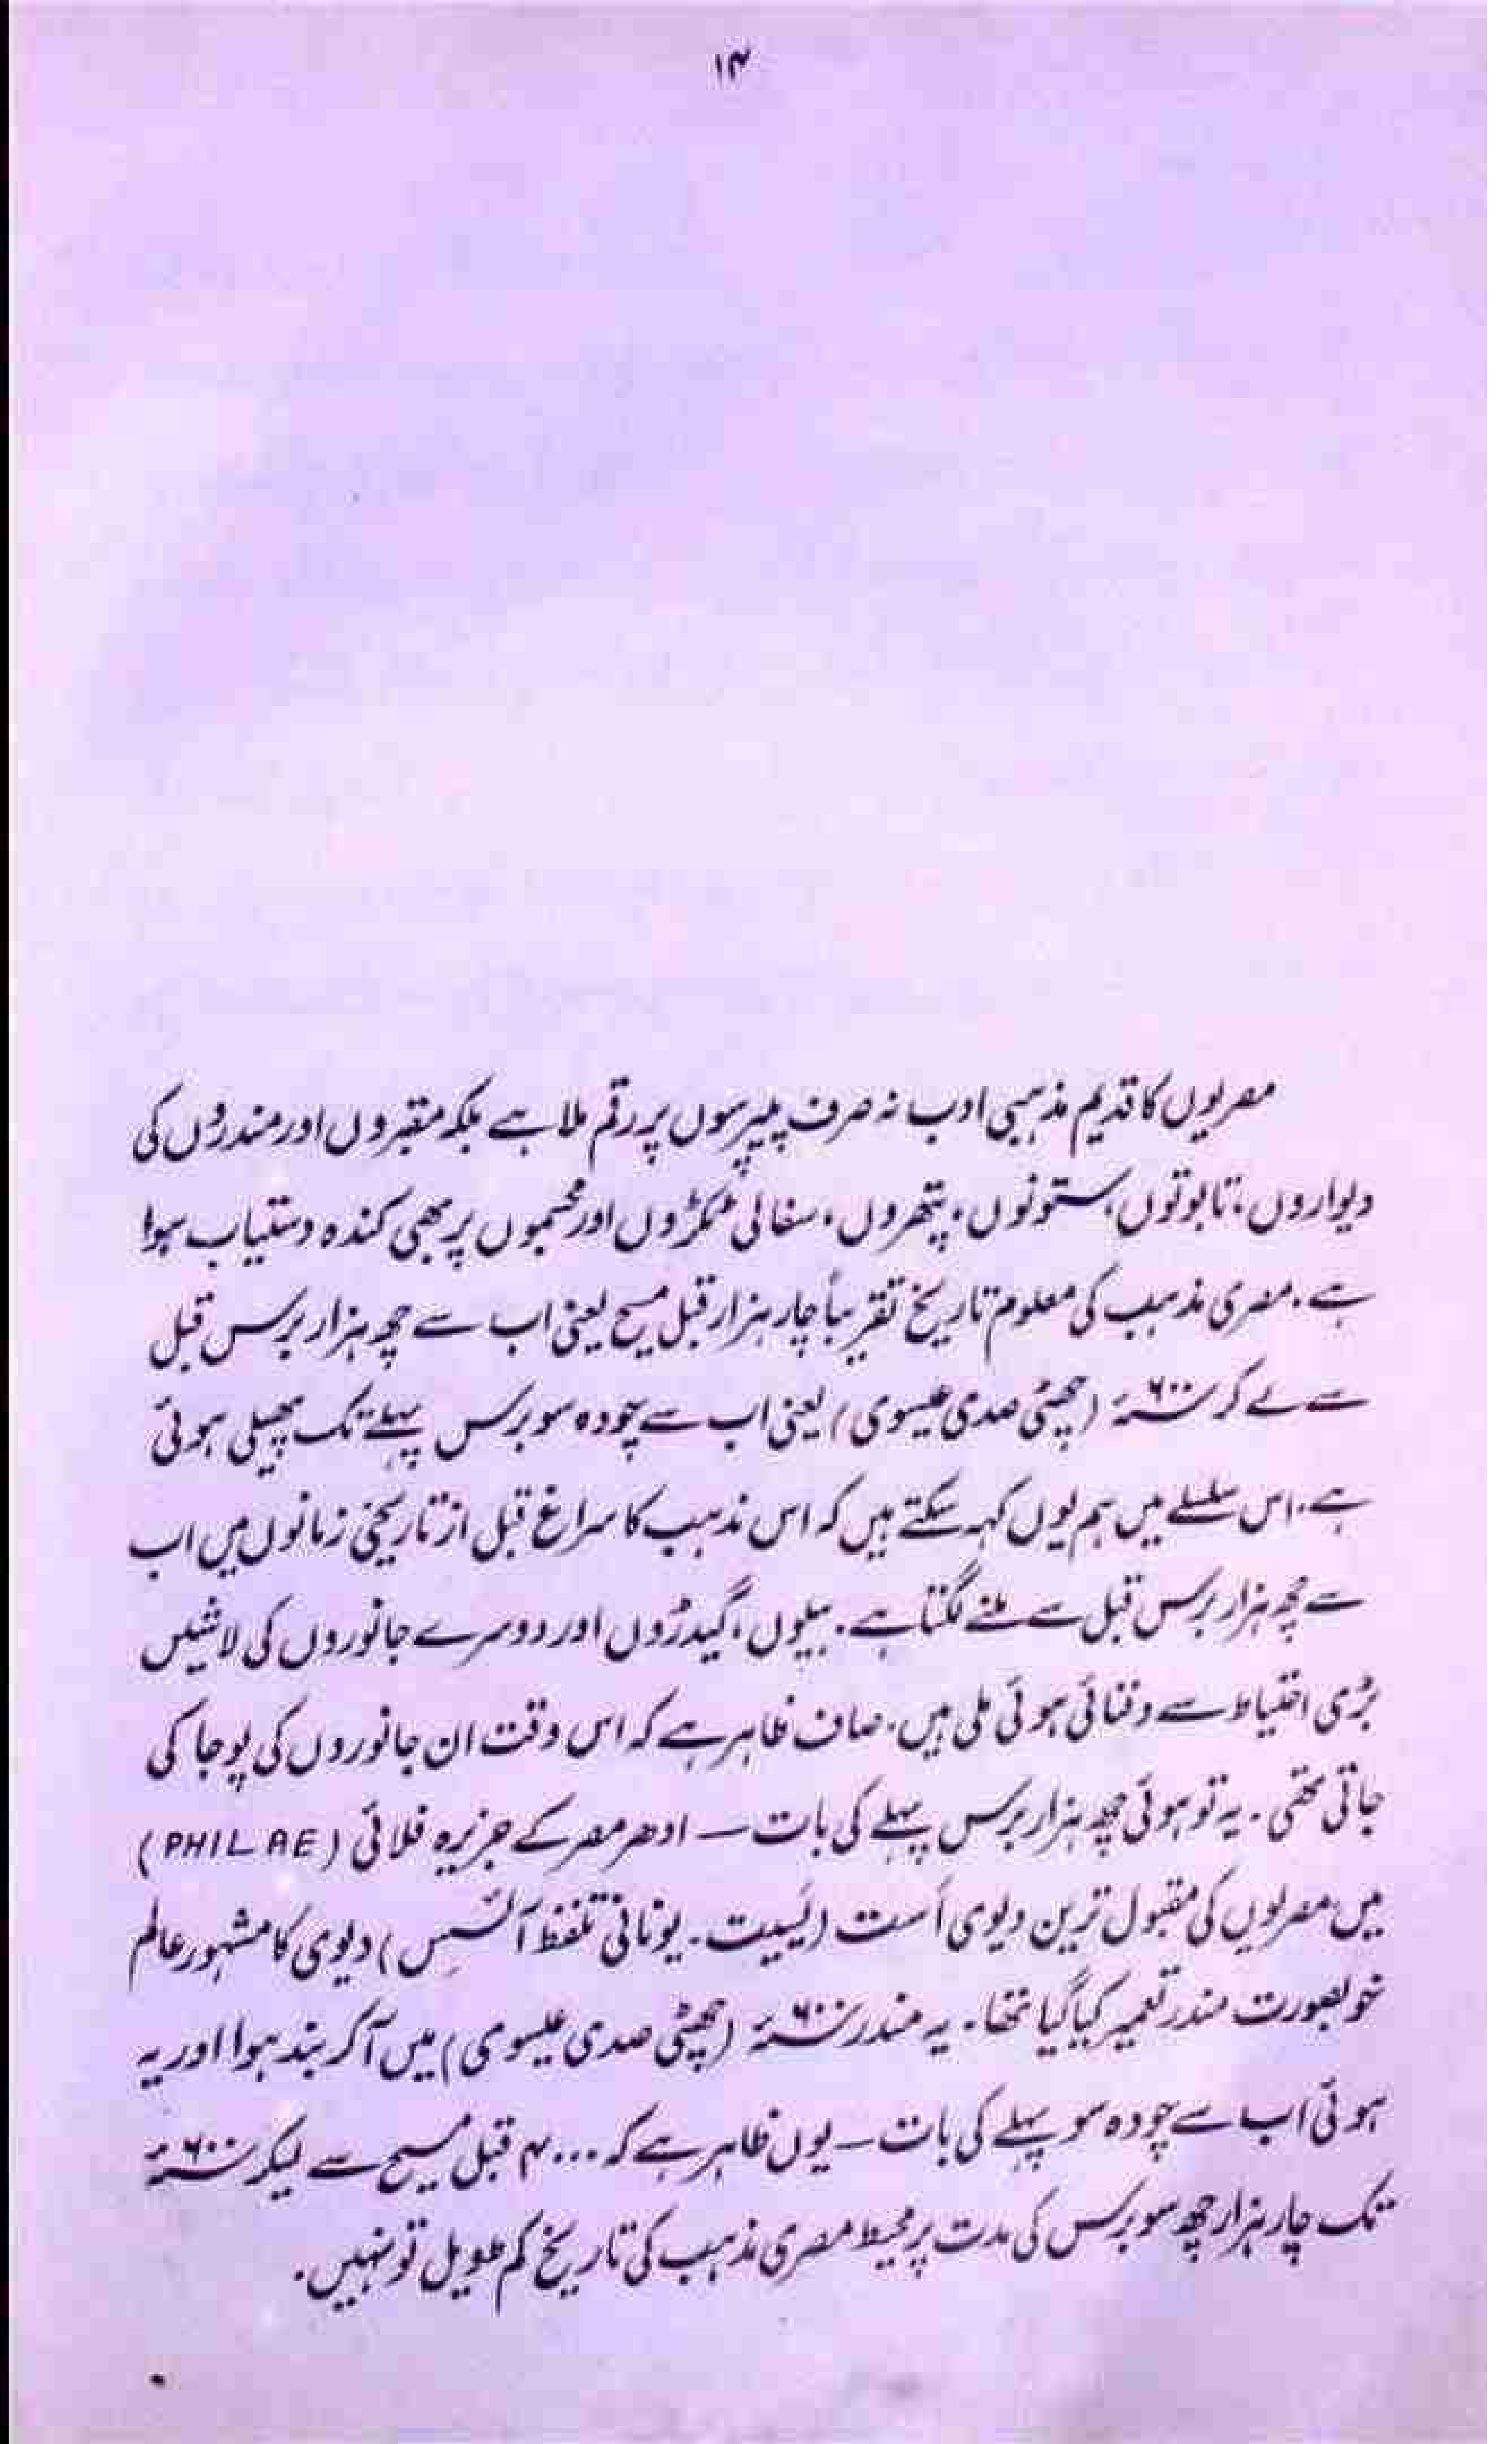 ۱۴
مصریوں کا قدیم مذہبی ادب نہ صرف پیپرسوں پر رقم ملا ہے بلکہ مقبروں اور مندروں کی
دیواروں، تابوتوں، ستونوں، پتھروں، سفالی ٹکڑوں اور مجسموں پر بھی کندہ دستیاب ہوا
ہے۔ مصری مذہب کی معلوم تاریخ تقریباً چار ہزار قبل مسیح یعنی اب سے چھ ہزار برس قبل
سے لے کر ۶۰۰ء (چھٹی صدی عیسوی) یعنی اب سے چودہ سو برس پہلے تک پھیلی ہوئی
ہے۔ اس سلسلے میں ہم یوں کہہ سکتے ہیں کہ اس مذہب کا سراغ قبل از تاریخی زمانوں میں اب
سے چھ ہزار برس قبل سے ملنے لگتا ہے۔ بیلوں، گیدڑوں اور دوسرے جانوروں کی لاشیں
بڑی احتیاط سے دفنائی ہوئی ملی ہیں۔ صاف ظاہر ہے کہ اس وقت ان جانوروں کی پوجا کی
جاتی تھی۔ یہ تو ہوئی چھ ہزار برس پہلے کی بات — ادھر مصر کے جزیرہ فلائی (PHILAE)
میں مصریوں کی مقبول ترین دیوی اُست (یسیت۔ یونانی تلفظ آئسِس) دیوی کا مشہور عالم
خوبصورت مندر تعمیر کیا گیا تھا۔ یہ مندر ۶۰۰ء (چھٹی صدی عیسوی) میں آکر بند ہوا اور یہ
ہوئی اب سے چودہ سو پہلے کی بات — یوں ظاہر ہے کہ ۴۰۰۰ قبل مسیح سے لیکر ۶۰۰ء
تک چار ہزار چھ سو برس کی مدت پر محیط مصری مذہب کی تاریخ کم طویل تو نہیں۔